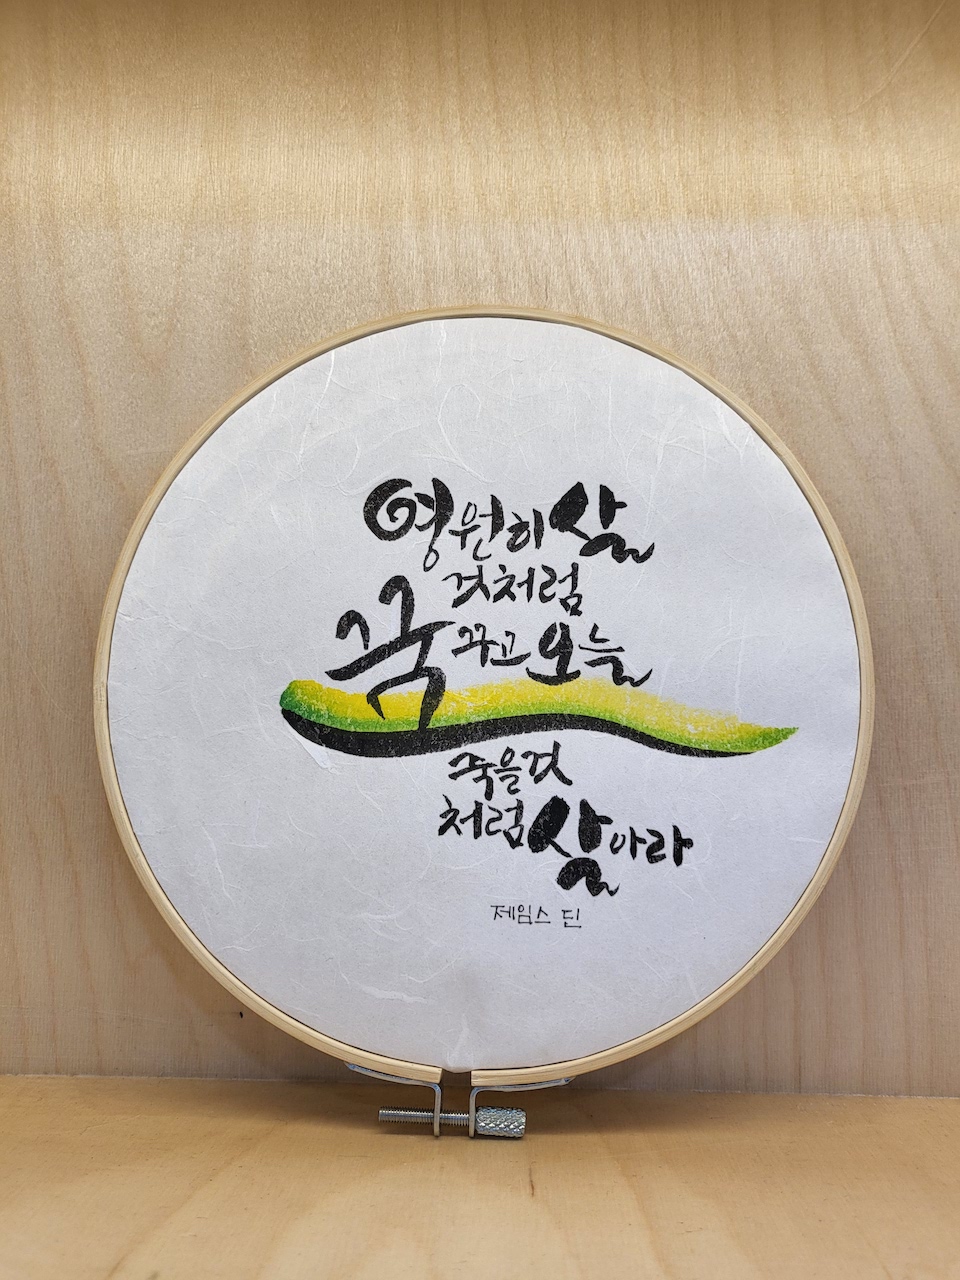 영원히 살
것처럼
꿈꾸고 오늘
죽을것
처럼 살아라
제임스 딘